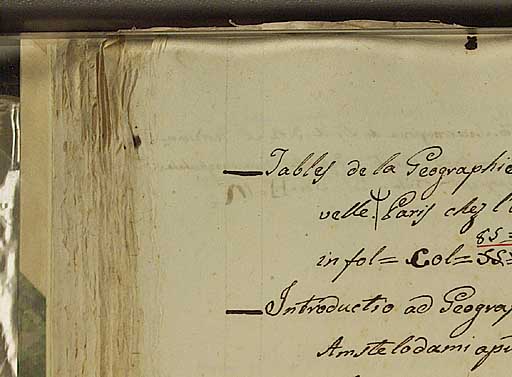 — Tables de la Geographie
velle. Paris chez l'
85=
in fol= Col= 55=
— Introductio ad Geograp
Amstelodami apu